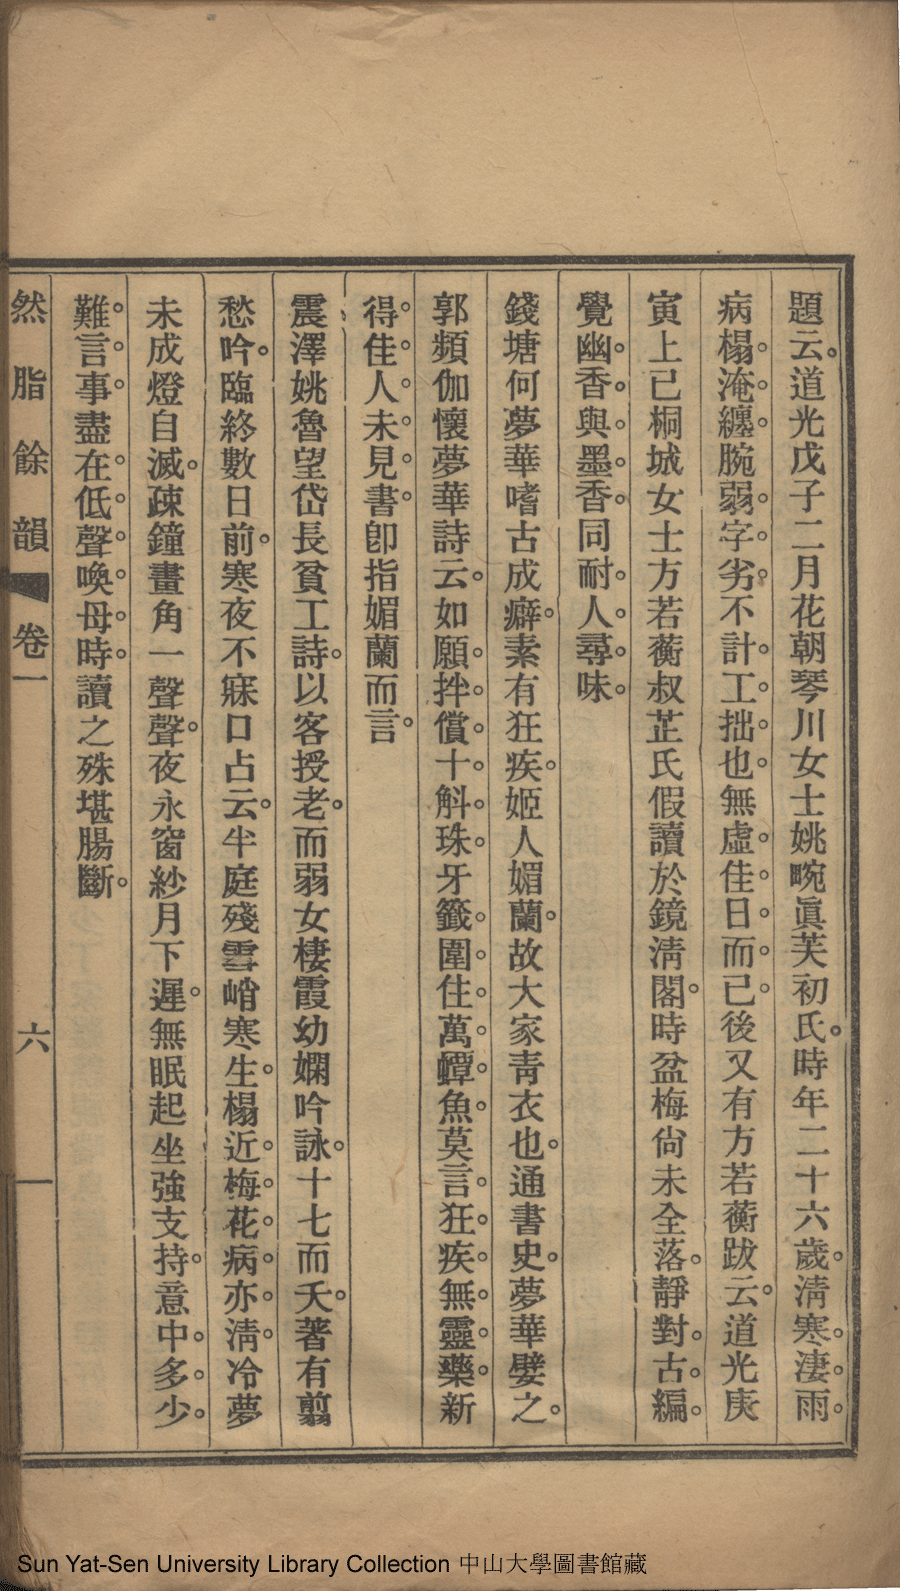 題云。道光戊子二月花朝琴川女士姚畹眞芙初氏。時年二十六歲。淸寒。淒。雨。
病榻。淹。纏。腕弱。字。劣。不計。工。拙。也。無虛。佳。日。而。已。後又有方若蘅跋云。道光庚
寅上已桐城女士方若蘅叔芷氏假讀於鏡淸閣。時盆梅尙未全落。靜對。古。編。
覺幽。香。與。墨。香。同耐。人。尋。味。
錢塘何夢華嗜古成癖。素有狂疾。姬人媚蘭。故大家靑衣也。通書史。夢華嬖之。
郭頻伽懷夢華詩云。如願。拌。償。十。斛。珠。牙籤。圍。住。萬。蟫。魚。莫言。狂。疾。無。靈。藥。新
得。佳。人。未。見。書。卽指媚蘭而言。
震澤姚魯望岱長貧工詩。以客授老。而弱女棲霞幼嫻吟詠。十七而夭。著有翦
愁吟。臨終數日前。寒夜不寐口占云。半庭殘雪峭寒生。榻近。梅。花。病。亦。淸。冷夢
未成燈自滅。疎鐘畫角一聲聲。夜永窗紗月下遲。無眠起坐強支持。意中。多。少。
難。言。事。盡在。低。聲。喚。母。時。讀之殊堪腸斷。
然脂餘韻 卷一 六 一
Sun Yat-Sen University Library Collection 中山大學圖書館藏